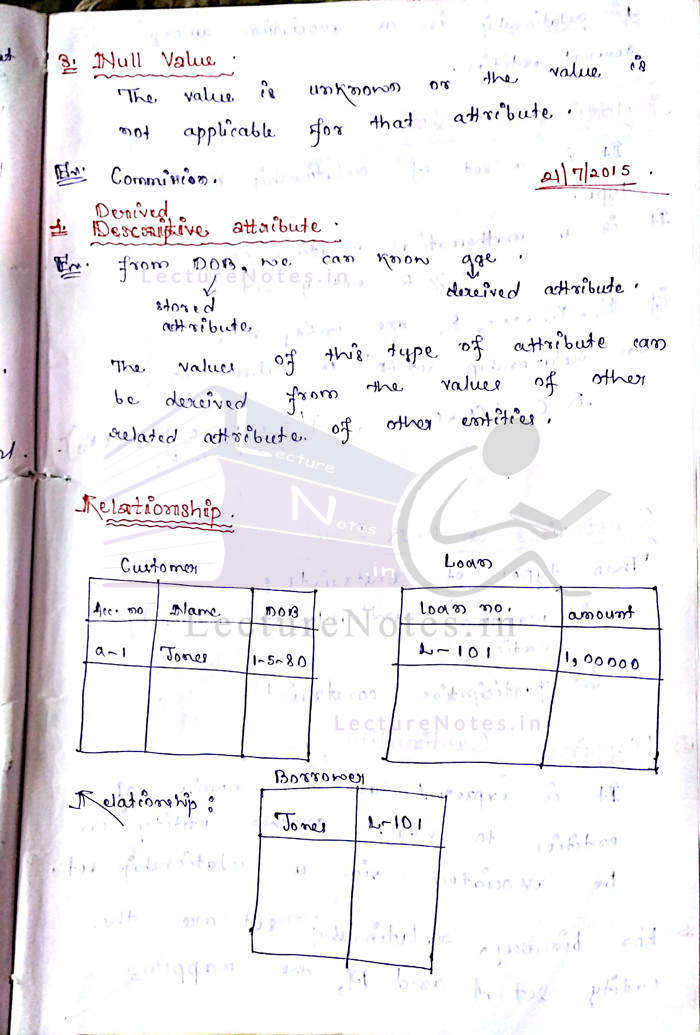 3. Null Value.
The value is unknown or the value is
not applicable for that attribute.
Ex:- Commission.
21/7/2015.
Derived
Descriptive attribute.
Ex:- from DOB, we can know age.
stored
attribute
dereived attribute.
The values of this type of attribute can
be dereived from the values of other
related attribute. of other entities.
Lecture
Notes
.in
Relationship.
Customer
Acc. no Name DOB
a-1 Jones 1-5-80
Loan
Loan no. amount
L-101 1,00000
LectureNotes.in
LectureNotes.in
LectureNotes.in
Relationship:
Borrower
Jones L-101